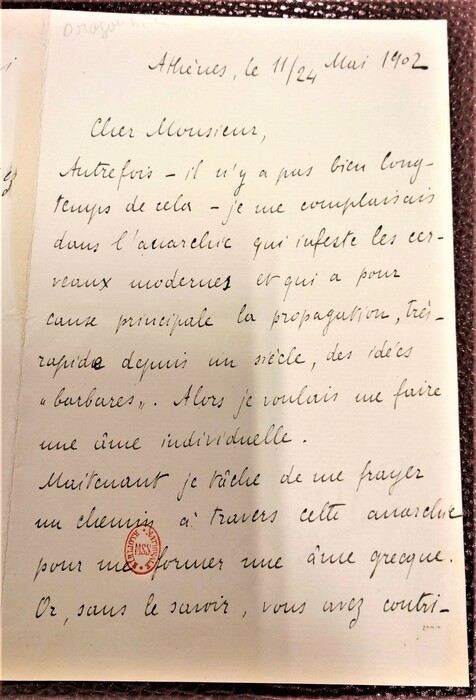 Athènes, le 11/24 Mai 1902
Cher Monsieur,
Autrefois – il n'y a pas bien long-
temps de cela – je me complaisais
dans l'anarchie qui infeste les cer-
veaux modernes et qui a pour
cause principale la propagation, très-
rapide depuis un siècle, des idées
"barbares". Alors je voulais me faire
une âme individuelle.
Maitenant je tâche de me frayer
un chemin à travers cette anarchie
pour me former une âme grecque.
Or, sans le savoir, vous avez contri-
BIBLIOTH. NATIONALE
MSS